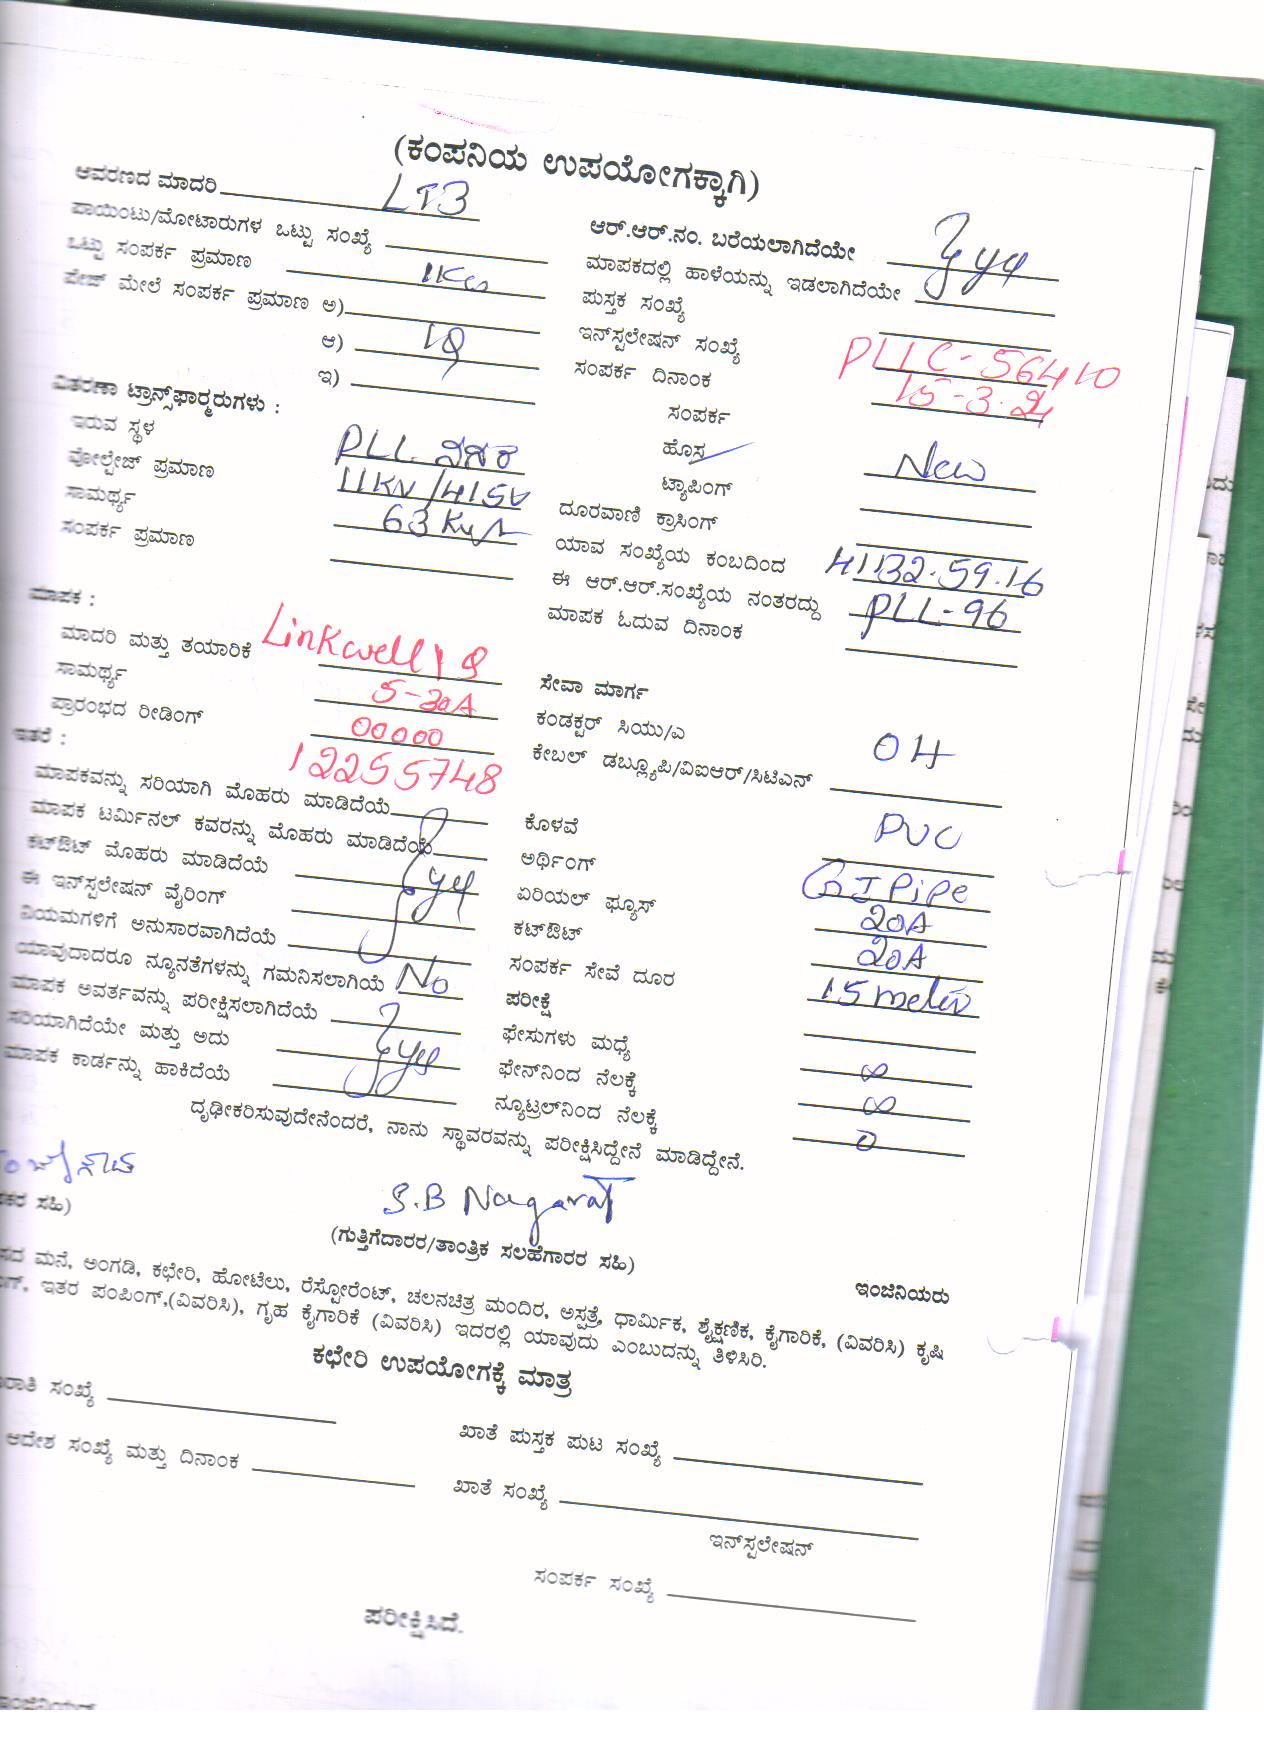 (ಕಂಪನಿಯ ಉಪಯೋಗಕ್ಕಾಗಿ)
ಆವರಣದ ಮಾದರಿ LT3
ಪಾಯಿಂಟು/ಮೋಟಾರುಗಳ ಒಟ್ಟು ಸಂಖ್ಯೆ
ಒಟ್ಟು ಸಂಪರ್ಕ ಪ್ರಮಾಣ 1Kw
ಪೇಜ್ ಮೇಲೆ ಸಂಪರ್ಕ ಪ್ರಮಾಣ ಅ)
ಆ) 1Φ
ಇ)
ವಿತರಣಾ ಟ್ರಾನ್ಸ್‌ಫಾರ್‍ಮರುಗಳು :
ಇರುವ ಸ್ಥಳ PLL ನಗರ
ವೋಲ್ಟೇಜ್ ಪ್ರಮಾಣ 11KV/415V
ಸಾಮರ್ಥ್ಯ 63 KVA
ಸಂಪರ್ಕ ಪ್ರಮಾಣ
ಮಾಪಕ :
ಮಾದರಿ ಮತ್ತು ತಯಾರಿಕೆ Linkwell 1 Φ
ಸಾಮರ್ಥ್ಯ 5-30A
ಪ್ರಾರಂಭದ ರೀಡಿಂಗ್ 00000
ಇತರೆ : 12255748
ಮಾಪಕವನ್ನು ಸರಿಯಾಗಿ ಮೊಹರು ಮಾಡಿದೆಯೆ
ಮಾಪಕ ಟರ್ಮಿನಲ್ ಕವರನ್ನು ಮೊಹರು ಮಾಡಿದೆಯೆ
ಕಟ್‌ಔಟ್ ಮೊಹರು ಮಾಡಿದೆಯೆ
ಈ ಇನ್‌ಸ್ಟಲೇಷನ್ ವೈರಿಂಗ್
ನಿಯಮಗಳಿಗೆ ಅನುಸಾರವಾಗಿದೆಯೆ
ಯಾವುದಾದರೂ ನ್ಯೂನತೆಗಳನ್ನು ಗಮನಿಸಲಾಗಿಯೆ No
ಮಾಪಕ ಅವರ್ತವನ್ನು ಪರೀಕ್ಷಿಸಲಾಗಿದೆಯೆ
ಸರಿಯಾಗಿದೆಯೇ ಮತ್ತು ಅದು
ಮಾಪಕ ಕಾರ್ಡನ್ನು ಹಾಕಿದೆಯೆ
ಆರ್.ಆರ್.ನಂ. ಬರೆಯಲಾಗಿದೆಯೇ
ಮಾಪಕದಲ್ಲಿ ಹಾಳೆಯನ್ನು ಇಡಲಾಗಿದೆಯೇ
ಪುಸ್ತಕ ಸಂಖ್ಯೆ
ಇನ್‌ಸ್ಟಲೇಷನ್ ಸಂಖ್ಯೆ PLLC-56410
ಸಂಪರ್ಕ ದಿನಾಂಕ 15-3-21
ಸಂಪರ್ಕ
ಹೊಸ New
ಟ್ಯಾಪಿಂಗ್
ದೂರವಾಣಿ ಕ್ರಾಸಿಂಗ್
ಯಾವ ಸಂಖ್ಯೆಯ ಕಂಬದಿಂದ 41132.59.16
ಈ ಆರ್.ಆರ್.ಸಂಖ್ಯೆಯ ನಂತರದ್ದು PLL-96
ಮಾಪಕ ಓದುವ ದಿನಾಂಕ
ಸೇವಾ ಮಾರ್ಗ
ಕಂಡಕ್ಟರ್ ಸಿಯು/ಎ OH
ಕೇಬಲ್ ಡಬ್ಲ್ಯೂಪಿ/ವಿಐಆರ್/ಸಿಟಿಎನ್
ಕೊಳವೆ PVC
ಅರ್ಥಿಂಗ್ GI Pipe
ಏರಿಯಲ್ ಫ್ಯೂಸ್ 20A
ಕಟ್‌ಔಟ್ 20A
ಸಂಪರ್ಕ ಸೇವೆ ದೂರ 15 meter
ಪರೀಕ್ಷೆ
ಫೇಸುಗಳು ಮಧ್ಯೆ
ಫೇನ್‌ನಿಂದ ನೆಲಕ್ಕೆ ∞
ನ್ಯೂಟ್ರಲ್‌ನಿಂದ ನೆಲಕ್ಕೆ ∞
0
ದೃಢೀಕರಿಸುವುದೇನೆಂದರೆ, ನಾನು ಸ್ಥಾವರವನ್ನು ಪರೀಕ್ಷಿಸಿದ್ದೇನೆ ಮಾಡಿದ್ದೇನೆ.
S.B Nagaraj
ಕರ ಸಹಿ)
(ಗುತ್ತಿಗೆದಾರರ/ತಾಂತ್ರಿಕ ಸಲಹೆಗಾರರ ಸಹಿ)
ಇಂಜಿನಿಯರು
ಸದ ಮನೆ, ಅಂಗಡಿ, ಕಛೇರಿ, ಹೋಟೆಲು, ರೆಸ್ಟೋರೆಂಟ್, ಚಲನಚಿತ್ರ ಮಂದಿರ, ಅಸ್ಪತ್ರೆ, ಧಾರ್ಮಿಕ, ಶೈಕ್ಷಣಿಕ, ಕೈಗಾರಿಕೆ, (ವಿವರಿಸಿ) ಕೃಷಿ
ಗ್, ಇತರ ಪಂಪಿಂಗ್,(ವಿವರಿಸಿ), ಗೃಹ ಕೈಗಾರಿಕೆ (ವಿವರಿಸಿ) ಇದರಲ್ಲಿ ಯಾವುದು ಎಂಬುದನ್ನು ತಿಳಿಸಿರಿ.
ಕಛೇರಿ ಉಪಯೋಗಕ್ಕೆ ಮಾತ್ರ
ರಾತಿ ಸಂಖ್ಯೆ
ಖಾತೆ ಪುಸ್ತಕ ಪುಟ ಸಂಖ್ಯೆ
ಆದೇಶ ಸಂಖ್ಯೆ ಮತ್ತು ದಿನಾಂಕ
ಖಾತೆ ಸಂಖ್ಯೆ
ಇನ್‌ಸ್ಟಲೇಷನ್
ಸಂಪರ್ಕ ಸಂಖ್ಯೆ
ಪರೀಕ್ಷಿಸಿದೆ.